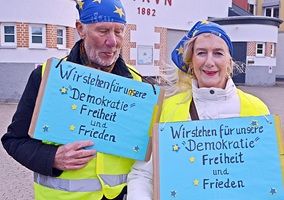 1882
Wir stehen für unsere
"Demokratie"
Freiheit
und
Frieden
Wir stehen für unsere
"Demokratie"
Freiheit
und
Frieden